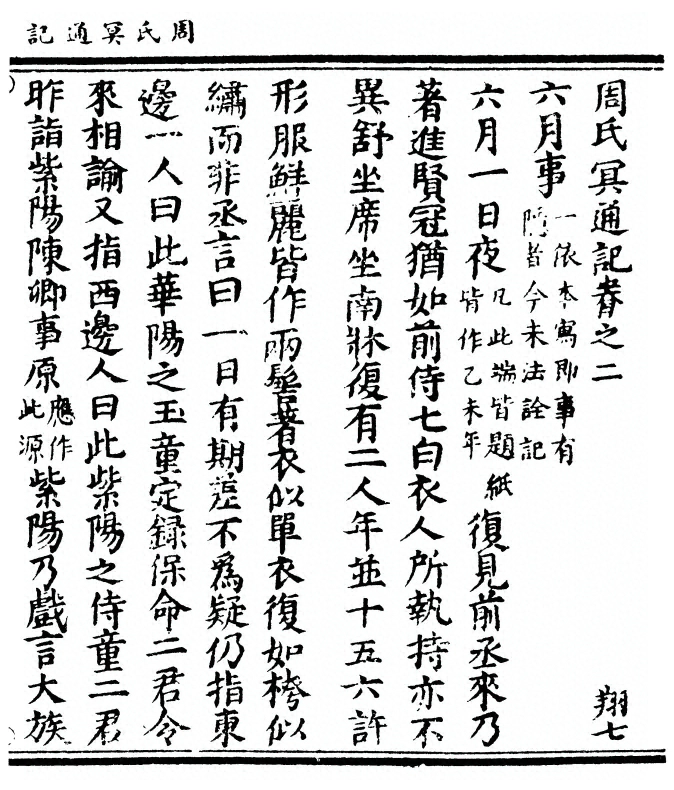 周氏冥通記
周氏冥通記卷之二 翔七
六月事 一依本寫即事有隱者今未法詮記
六月一日夜 凡此端皆題皆作乙未年 紙 復見前丞來乃
著進賢冠猶如前侍七白衣人所執持亦不
異舒坐席坐南牀復有二人年並十五六許
形服鮮麗皆作兩髻著衣似單衣復如袴似
繡而非丞言曰一日有期差不爲疑仍指東
邊一人曰此華陽之玉童定録保命二君令
來相諭又指西邊人曰此紫陽之侍童二君
昨詣紫陽陳卿事原 應作此源 紫陽乃戲言大族